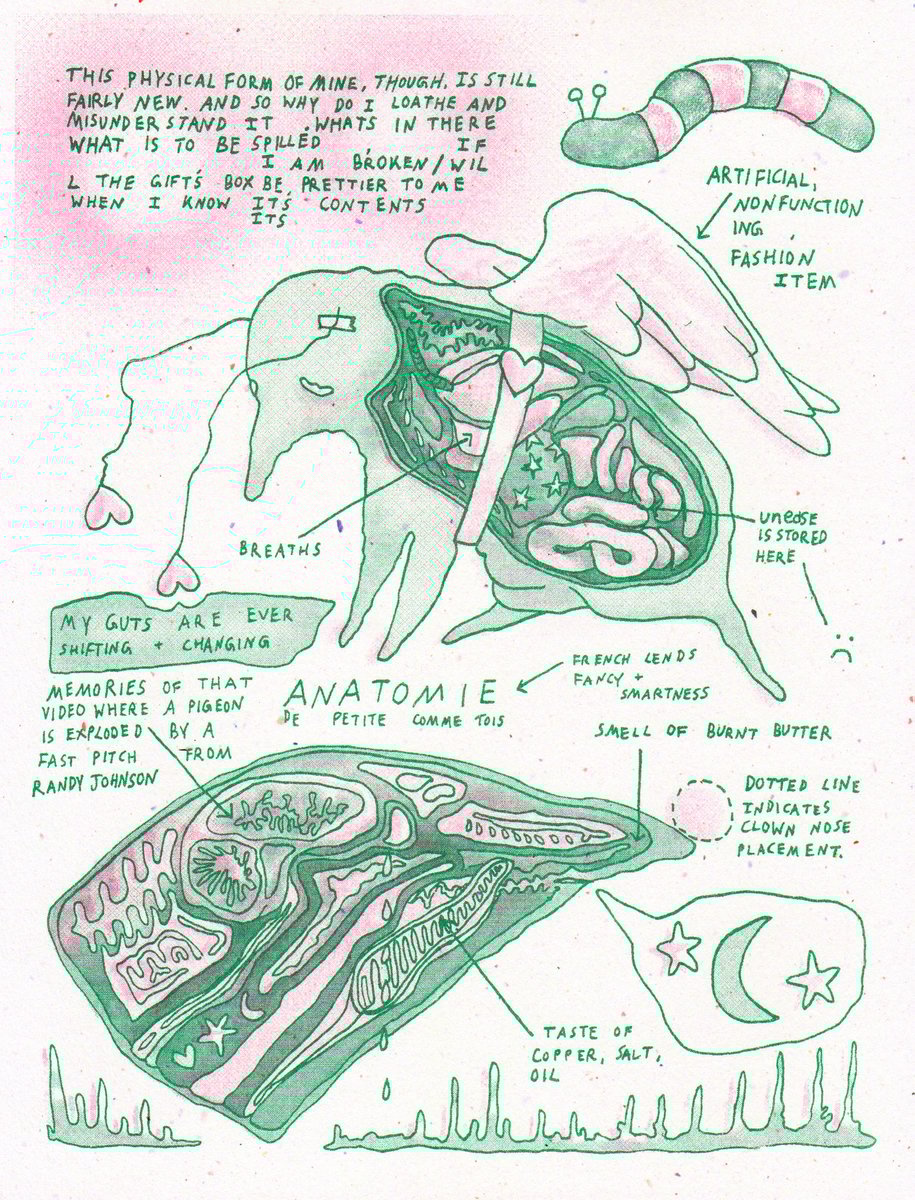 THIS PHYSICAL FORM OF MINE, THOUGH, IS STILL
FAIRLY NEW. AND SO WHY DO I LOATHE AND
MISUNDERSTAND IT . WHATS IN THERE
WHAT IS TO BE SPILLED , IF
I AM BROKEN/WIL
L THE GIFTS BOX BE PRETTIER TO ME
WHEN I KNOW ITS CONTENTS
ITS
ARTIFICIAL,
NONFUNCTION
ING ,
FASHION
ITEM
BREATHS
unease
IS STORED
HERE
MY GUTS ARE EVER
SHIFTING + CHANGING
MEMORIES OF THAT
VIDEO WHERE A PIGEON
IS EXPLODED BY A
FAST PITCH FROM
RANDY JOHNSON
ANATOMIE
DE PETITE COMME TOIS
FRENCH LENDS
FANCY +
SMARTNESS
SMELL OF BURNT BUTTER
DOTTED LINE
INDICATES
CLOWN NOSE
PLACEMENT.
TASTE OF
COPPER, SALT,
OIL